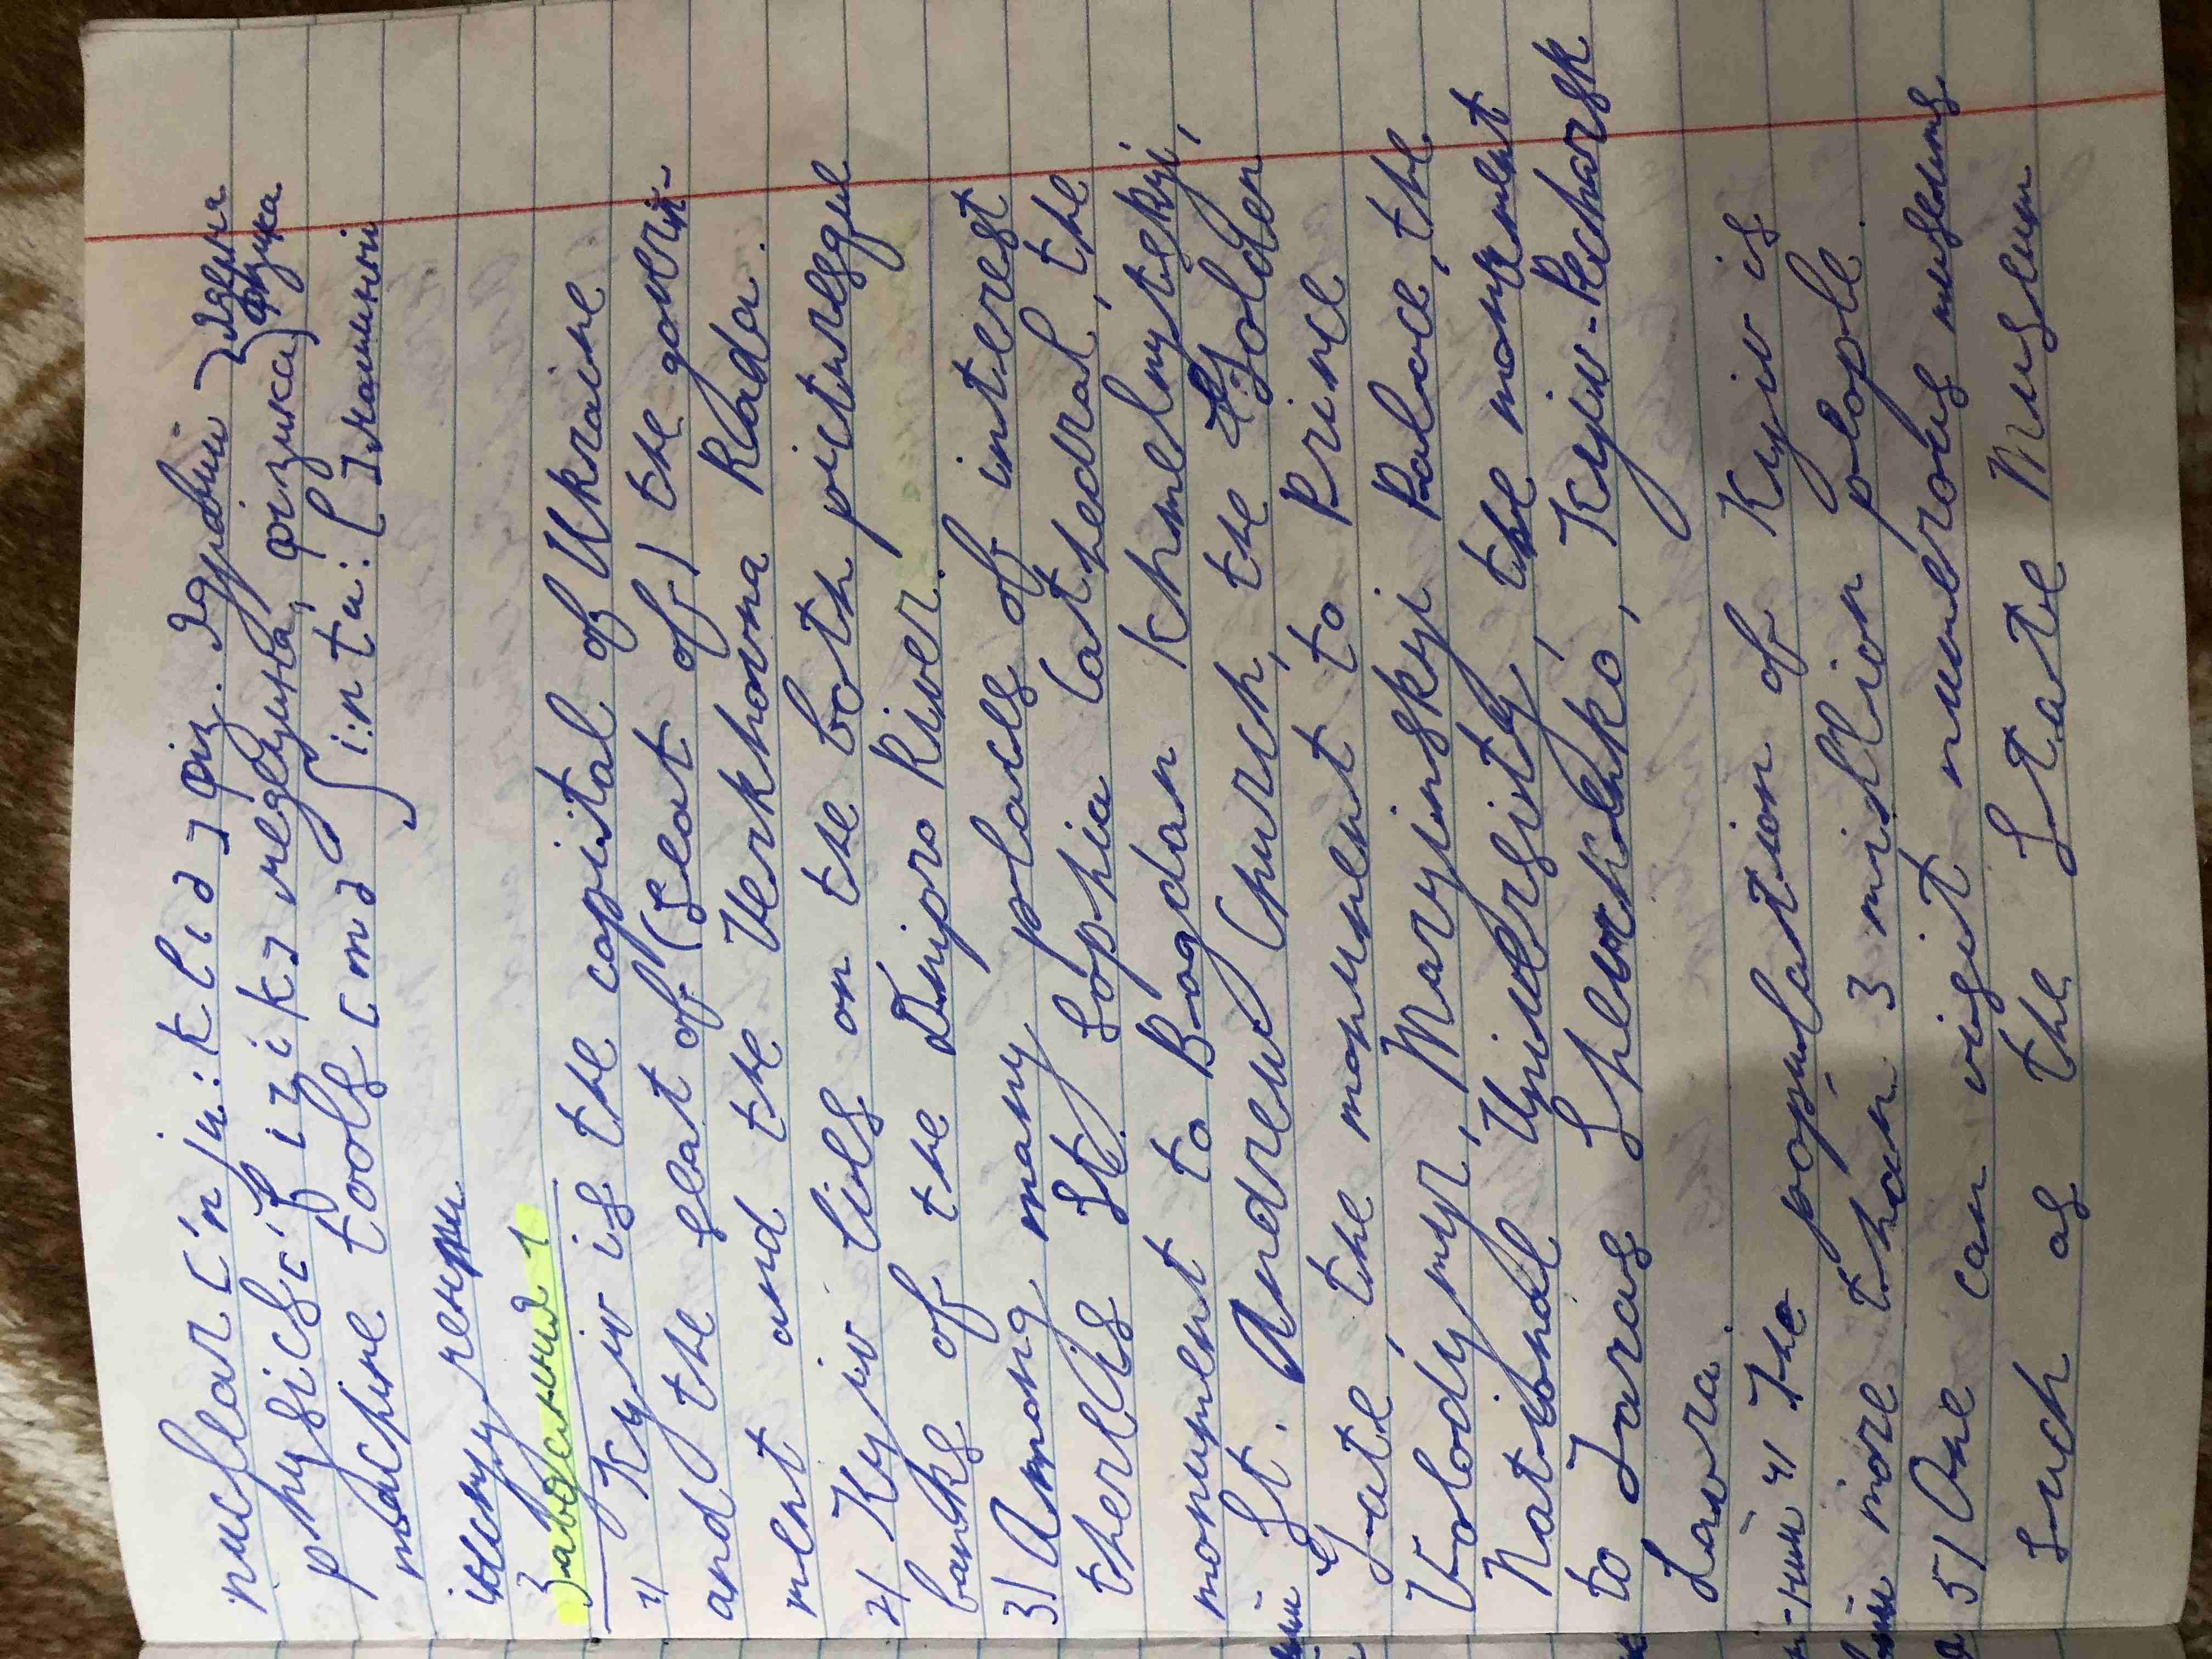 nuclear ['nju:kliə] фіз. ядерний } ядерна
physics ['fiziks] медицина, фізика } фізика
machine tools [mə'ʃi:n tu:l] машинні
інструменти
Завдання 1
1) Kyiv is the capital of Ukraine
and the seat of (seat of) the govern-
ment and the Verkhovna Rada.
2) Kyiv lies on the both picturesque
banks of the Dnipro River.
3) Among many places of interest
there is St. Sophia Cathedral, the
monument to Bogdan Khmelnytskyi,
St. Andrew Church, the Golden
Gate, the monument to Prince
Volodymyr, Maryinskyi Palace, the
National University, the monument
to Taras Shevchenko, Kyiv-Pecharsk
Lavra.
4) The population of Kyiv is
more than 3 million people.
5) One can visit numerous museums
such as the State Museum